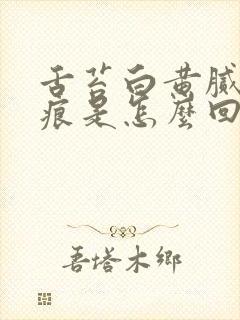 舌苔白黄腻
痕是怎麼回
吾塔木鄉